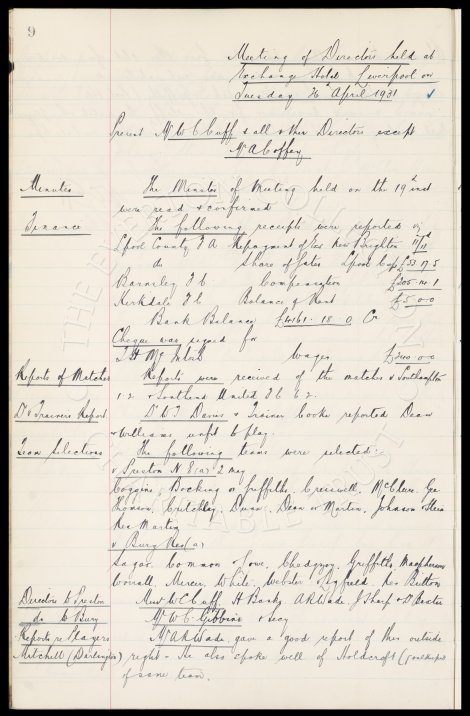 9
Meeting of Directors held at
Exchange Hotel Liverpool on
Tuesday April 1931
Present Mr W C Cuff & all other Directors except
Mr A Coffey
Minutes The Minutes of Meeting held on the 19th inst
were read & confirmed
Finance The following receipts were reported viz
Lpool County F A Repayment of exs New Brighton
do Share of Gates Lpool Cup £33 17 5
Barnsley F C Compensation
Kirkdale F C Balance of Rent £5 0 0
Bank Balance £4161 . 18 . 0 Cr
Cheque was signed for
T H McIntosh Wages £300 0 0
Reports of Matches Reports were received of the matches v Southampton
1-2 & Southend United F C 6-2.
Dr & Trainers Report Dr W T Davies & Trainer Cooke reported Dean
& Williams unfit to play.
Team Selections The following teams were selected:
v Preston N E (a) 2 may
Coggins, Bocking or Griffiths, Cresswell, McClure, Gee
Thomson, Critchley, Dunn, Dean or Martin, Johnson & Stein
Res Martin
v Bury Res (a)
Sagar. Common & Lowe, Chedgzoy, Griffiths, Macpherson
Worrall, Mercer, White, Webster & Rigby Res Button
Directors to Preston Messrs W C Cuff, H Banks, A R Wade, J Sharp & Dr Baxter
do to Bury Mr W C Gibbins & secy
Reports re Players Mr A R Wade gave a good report of this outside
Mitchell (Darlington) right - He also spoke well of Holdcroft (goalkeeper
of same team.